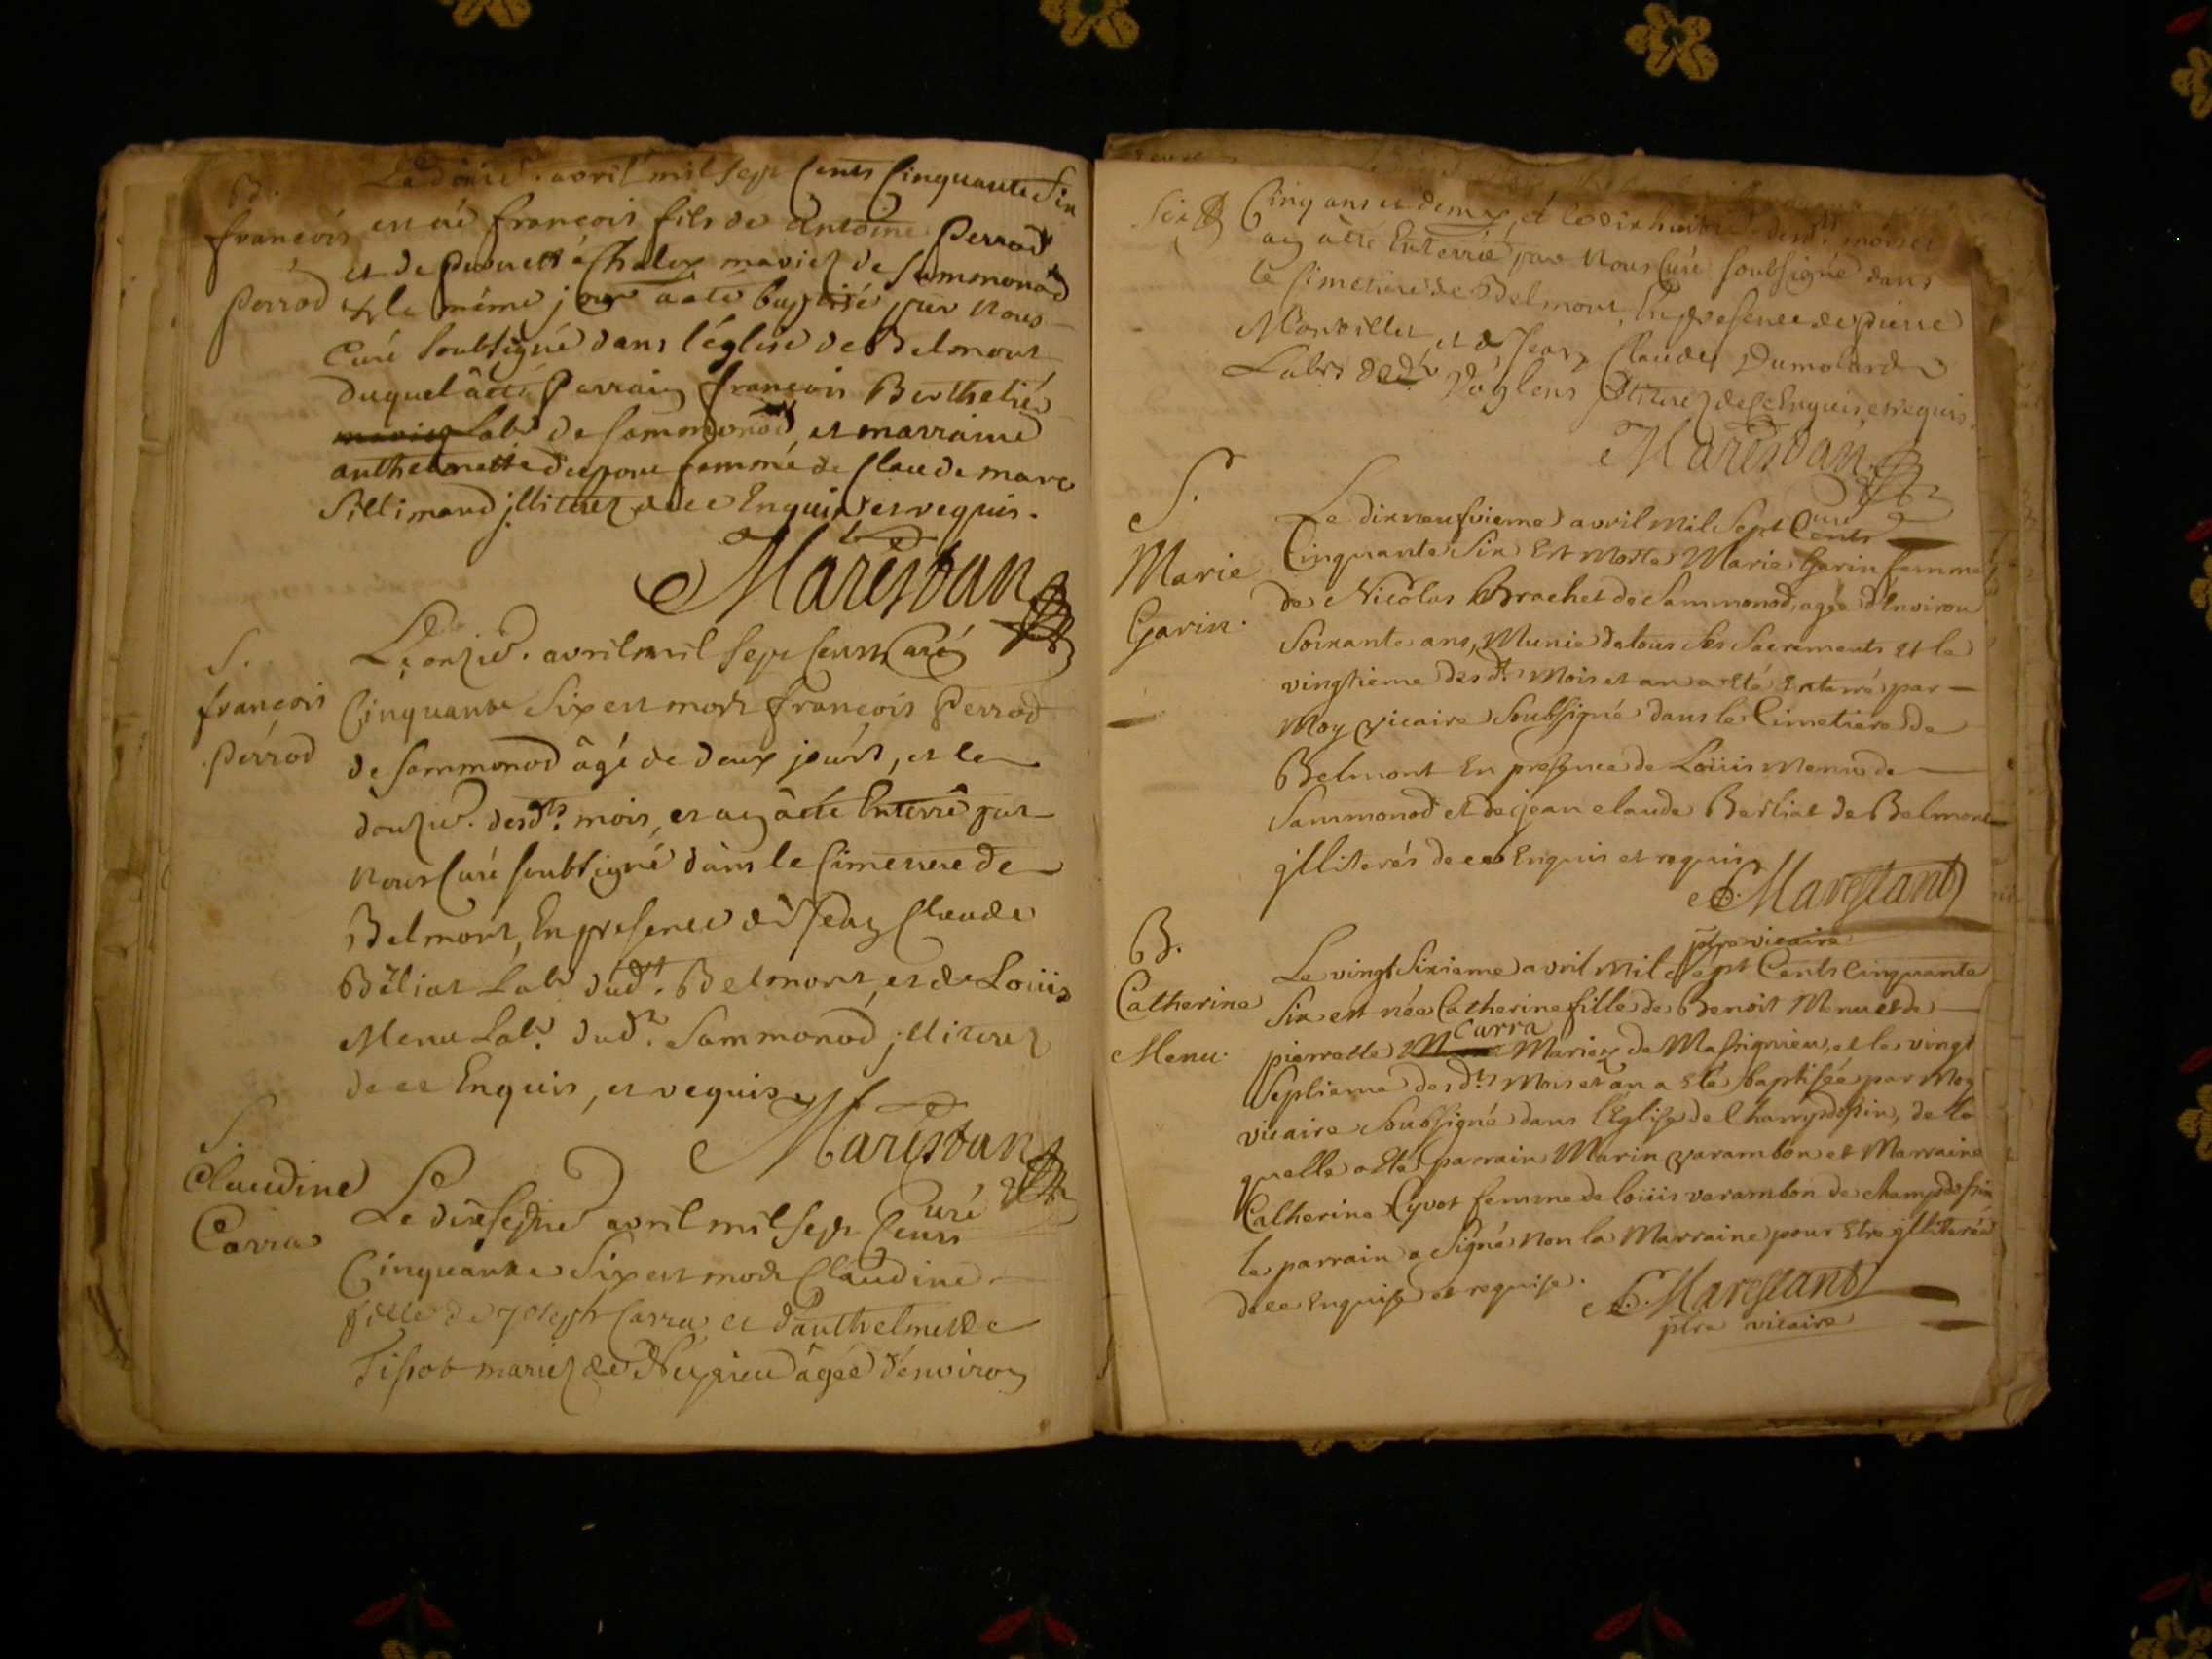 B.
françois
perrod
avril mil sept Cents Cinquante Six
est né françois fils de Antoine Perrod
et de mariez de Sammonod
le même jour a été baptisé par nous
Curé soubsigné dans l'église de Belmont
duquel a été Parrain françois Berthelié
Labr de Sammonod, et marraine
anthelmette femme de Claude marc
Sillimand jlliterez de ce Enquis et requis.
Marestan
Curé
S.
françois
perrod
L'onzie. avril mil sept Cents
Cinquante Six est mort françois Perrod
de Sammonod âgé de deux jours, et le
douzie. desdts. mois, et an a été Enterré par
nous Curé soubsigné dans le Cimetiere de
Belmont, En presence de Jean Claude
Béliat Labr dudt. Belmont, et de Louis
Menu Labr. dudt. Sammonod jlliterez
de ce Enquis, et requis
Marestan
Curé
S.
Claudine
Carra
Le dixseptie avril mil sept Cents
Cinquante Six est morte Claudine
fille de Joseph Carra et d'anthelmette
Tissot mariez de âgée d'environ
Cinq ans et demy, et le dix huitie desdts mois et
an a été Enterrée par Nous Curé soubsigné dans
le Cimetiere de Belmont, En presence de pierre
et de Jean Claude Dumolard
Labrs de Voglens jlliterez de ce Enquis et requis.
Marestan
Curé
S.
Marie
Garin.
Le dixneufvieme avril Mil Sept Cents
Cinquante Six Est Morte Marie Garin femme
de Nicolas Brachet de Sammonod, agée d'Environ
Soixante ans, Munie de tous Ses Sacrements et le
vingtieme desdts Mois et an a Eté Enterré par
Moy vicaire Soubsigné dans le Cimetiere de
Belmont En presence de Loüis Menu de
Sammonod et de jean claude Berliat de Belmont
jlliterés de ce Enquis et requis
C. Marestant
ptre vicaire
B.
Catherine
Menu.
Le vingt Sixieme avril Mil Sept Cents Cinquante
Six est née Catherine fille de Benoit Menu et de
pierrette Carra Mariez de Massignieu, et le vingt
Septieme desdts Mois et an a Eté baptisée par Moy
vicaire Soubsigné dans l'Eglise de Champdossin, de la
quelle a Eté parrain Marin varambon et Marraine
Catherine Cyvot femme de loüis varambon de champdossin
le parrain a Signé Non la Marraine pour Etre jlliterée
de ce Enquise et requise.
C. Marestant
ptre vicaire